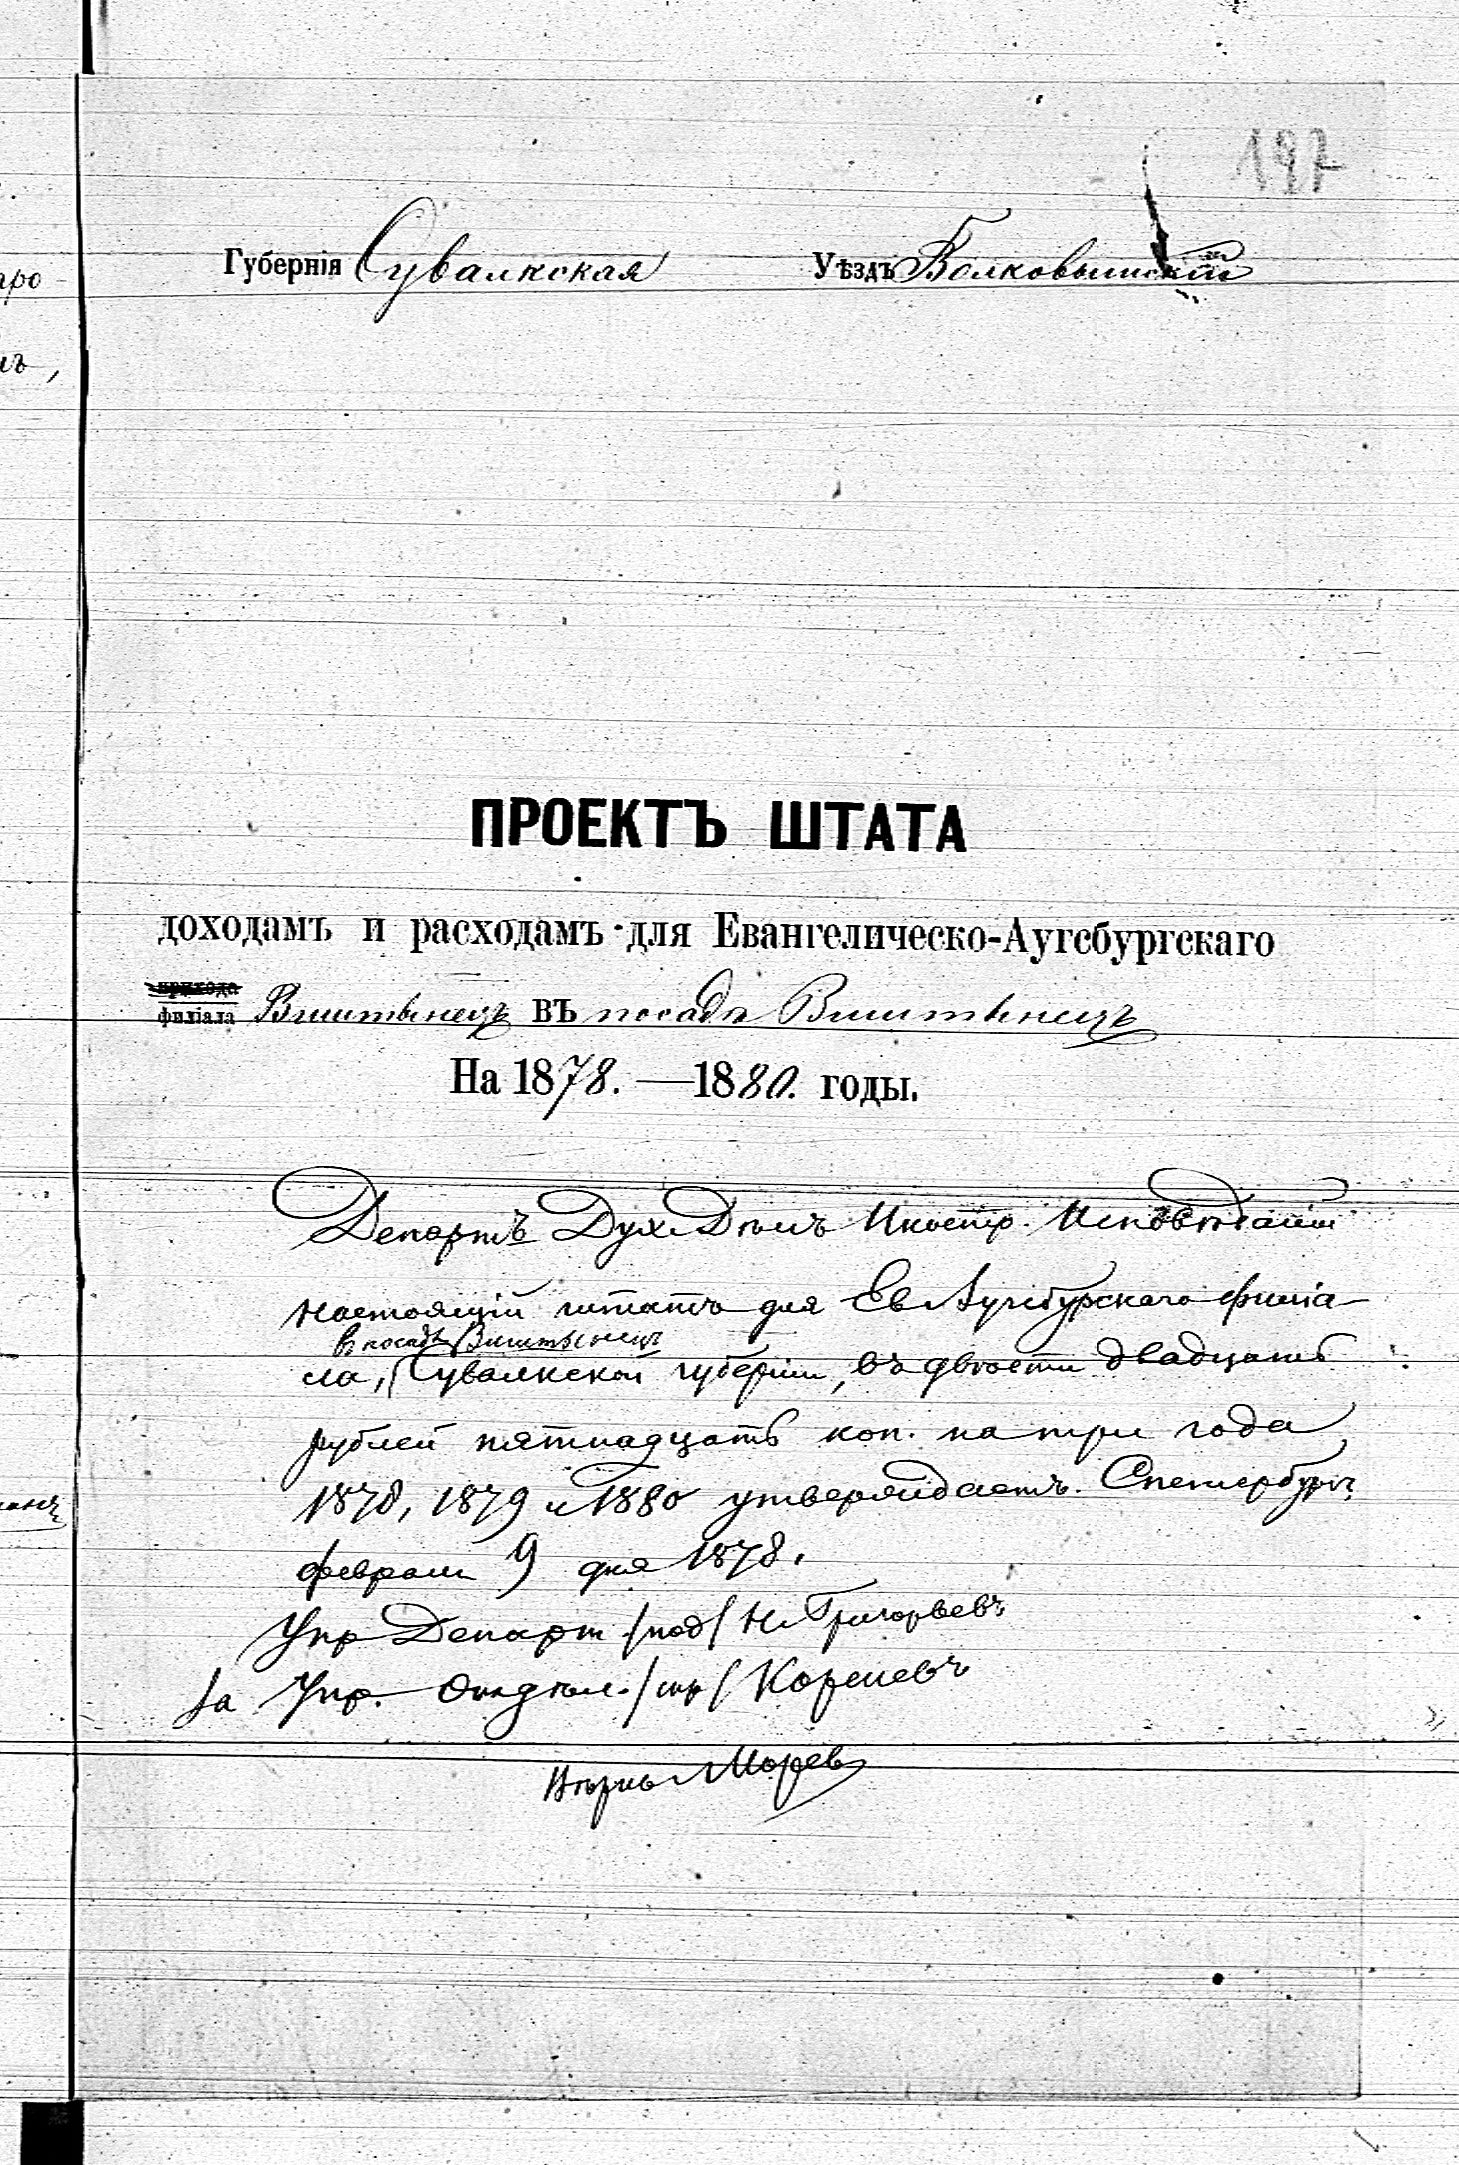 197
Губернія Сувалкская Уѣздъ Волковышскій
ПРОЕКТЪ ШТАТА
доходамъ и расходамъ для Евангелическо-Аугсбургскаго
прихода
филіала Виштынецъ въ посадѣ Виштынецъ
На 1878. — 1880. годы.
Департъ Дух Дѣлъ Иностр. Исповѣданій
настоящій штатъ для Ев Аугсбургскаго филіа-
в посадѣ Виштынецъ
ла, Сувалкской губерніи, въ двѣсти двадцать
рублей пятнадцать коп. на три года
1878, 1879 и 1880 утверждаетъ. Спетербургъ
февраля 9 дня 1878.
Упр Департ /под/ Н. Григорьевъ
За Упр. Отдѣл. /скр/ Кореневъ
Вѣрно Морев